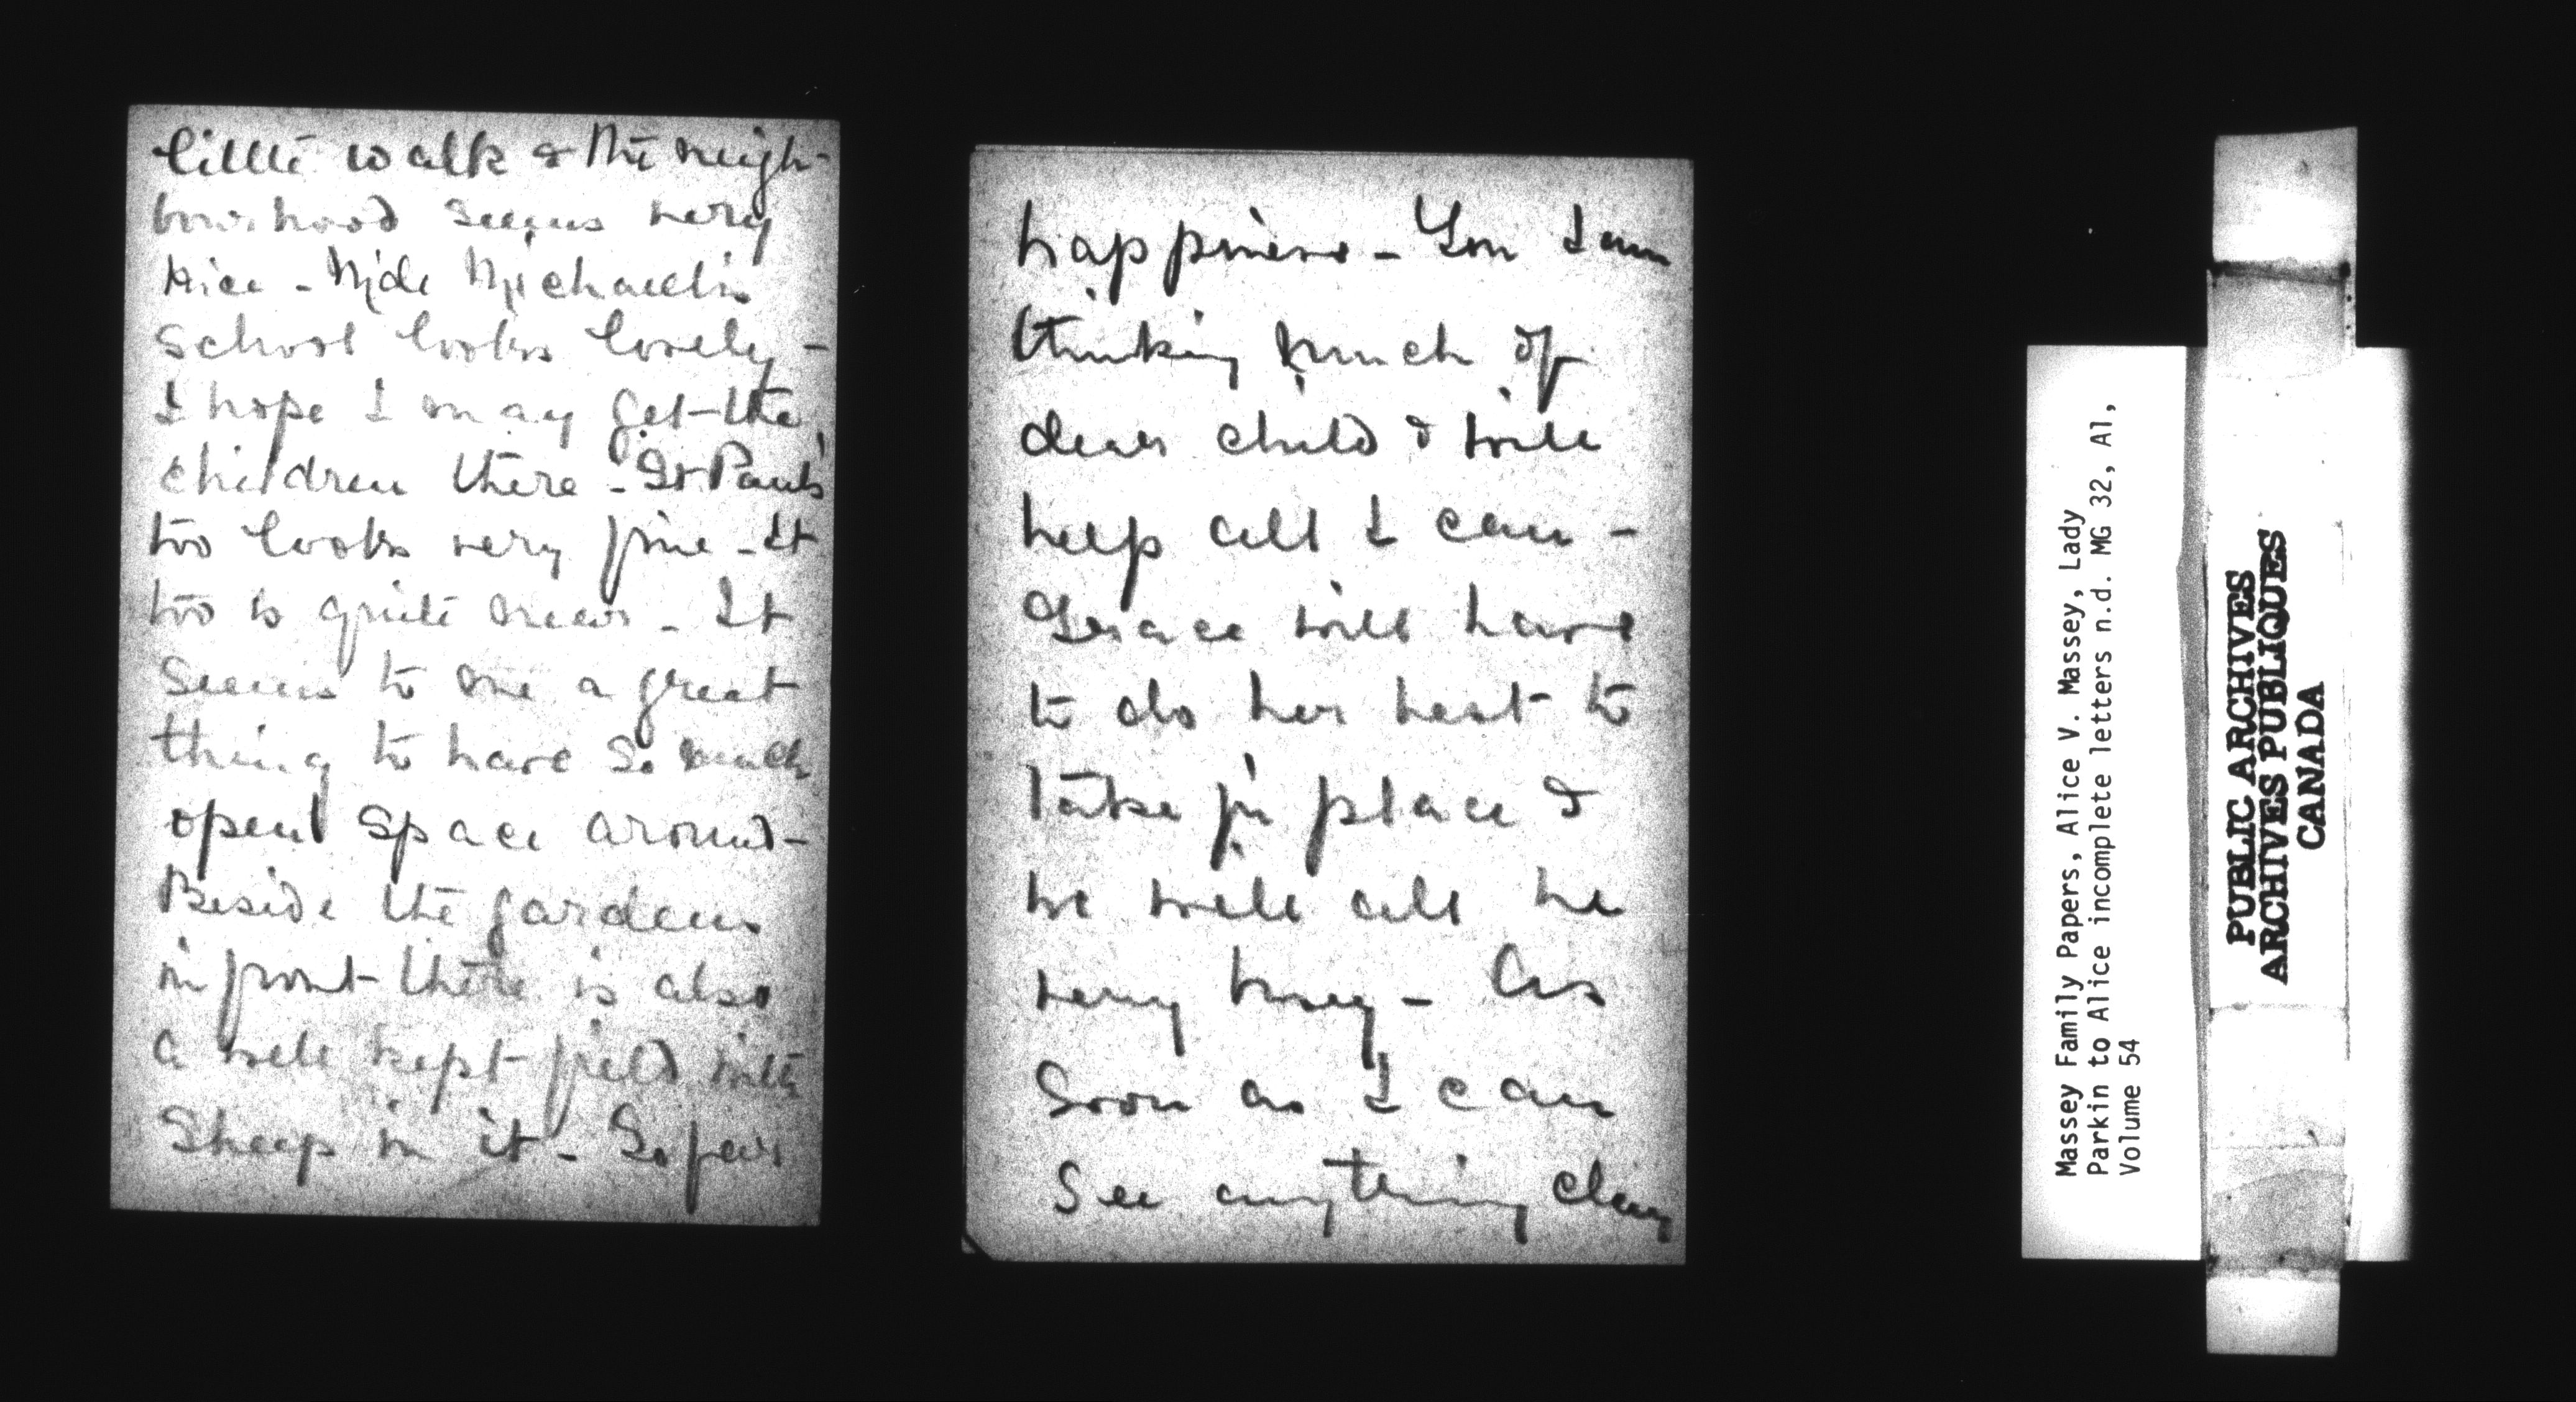 little walk & the neigh-
bourhood seems very
nice - Mde Michaelis
school looks lovely -
I hope I may get the
children there - St Paul's
too looks very fine - It
too is quite near - It
seems to me a great
thing to have so much
open space around -
Beside the gardens
in front there is also
a well kept field with
sheep in it - So far
happiness - You I am
thinking much of
dear child & will
help all I can -
Grace will have
to do her best to
take place &
we will all be
very busy - As
soon as I can
see anything clearly
Massey Family Papers, Alice V. Massey, Lady
Parkin to Alice incomplete letters n.d. MG 32, A1,
Volume 54
PUBLIC ARCHIVES
ARCHIVES PUBLIQUES
CANADA